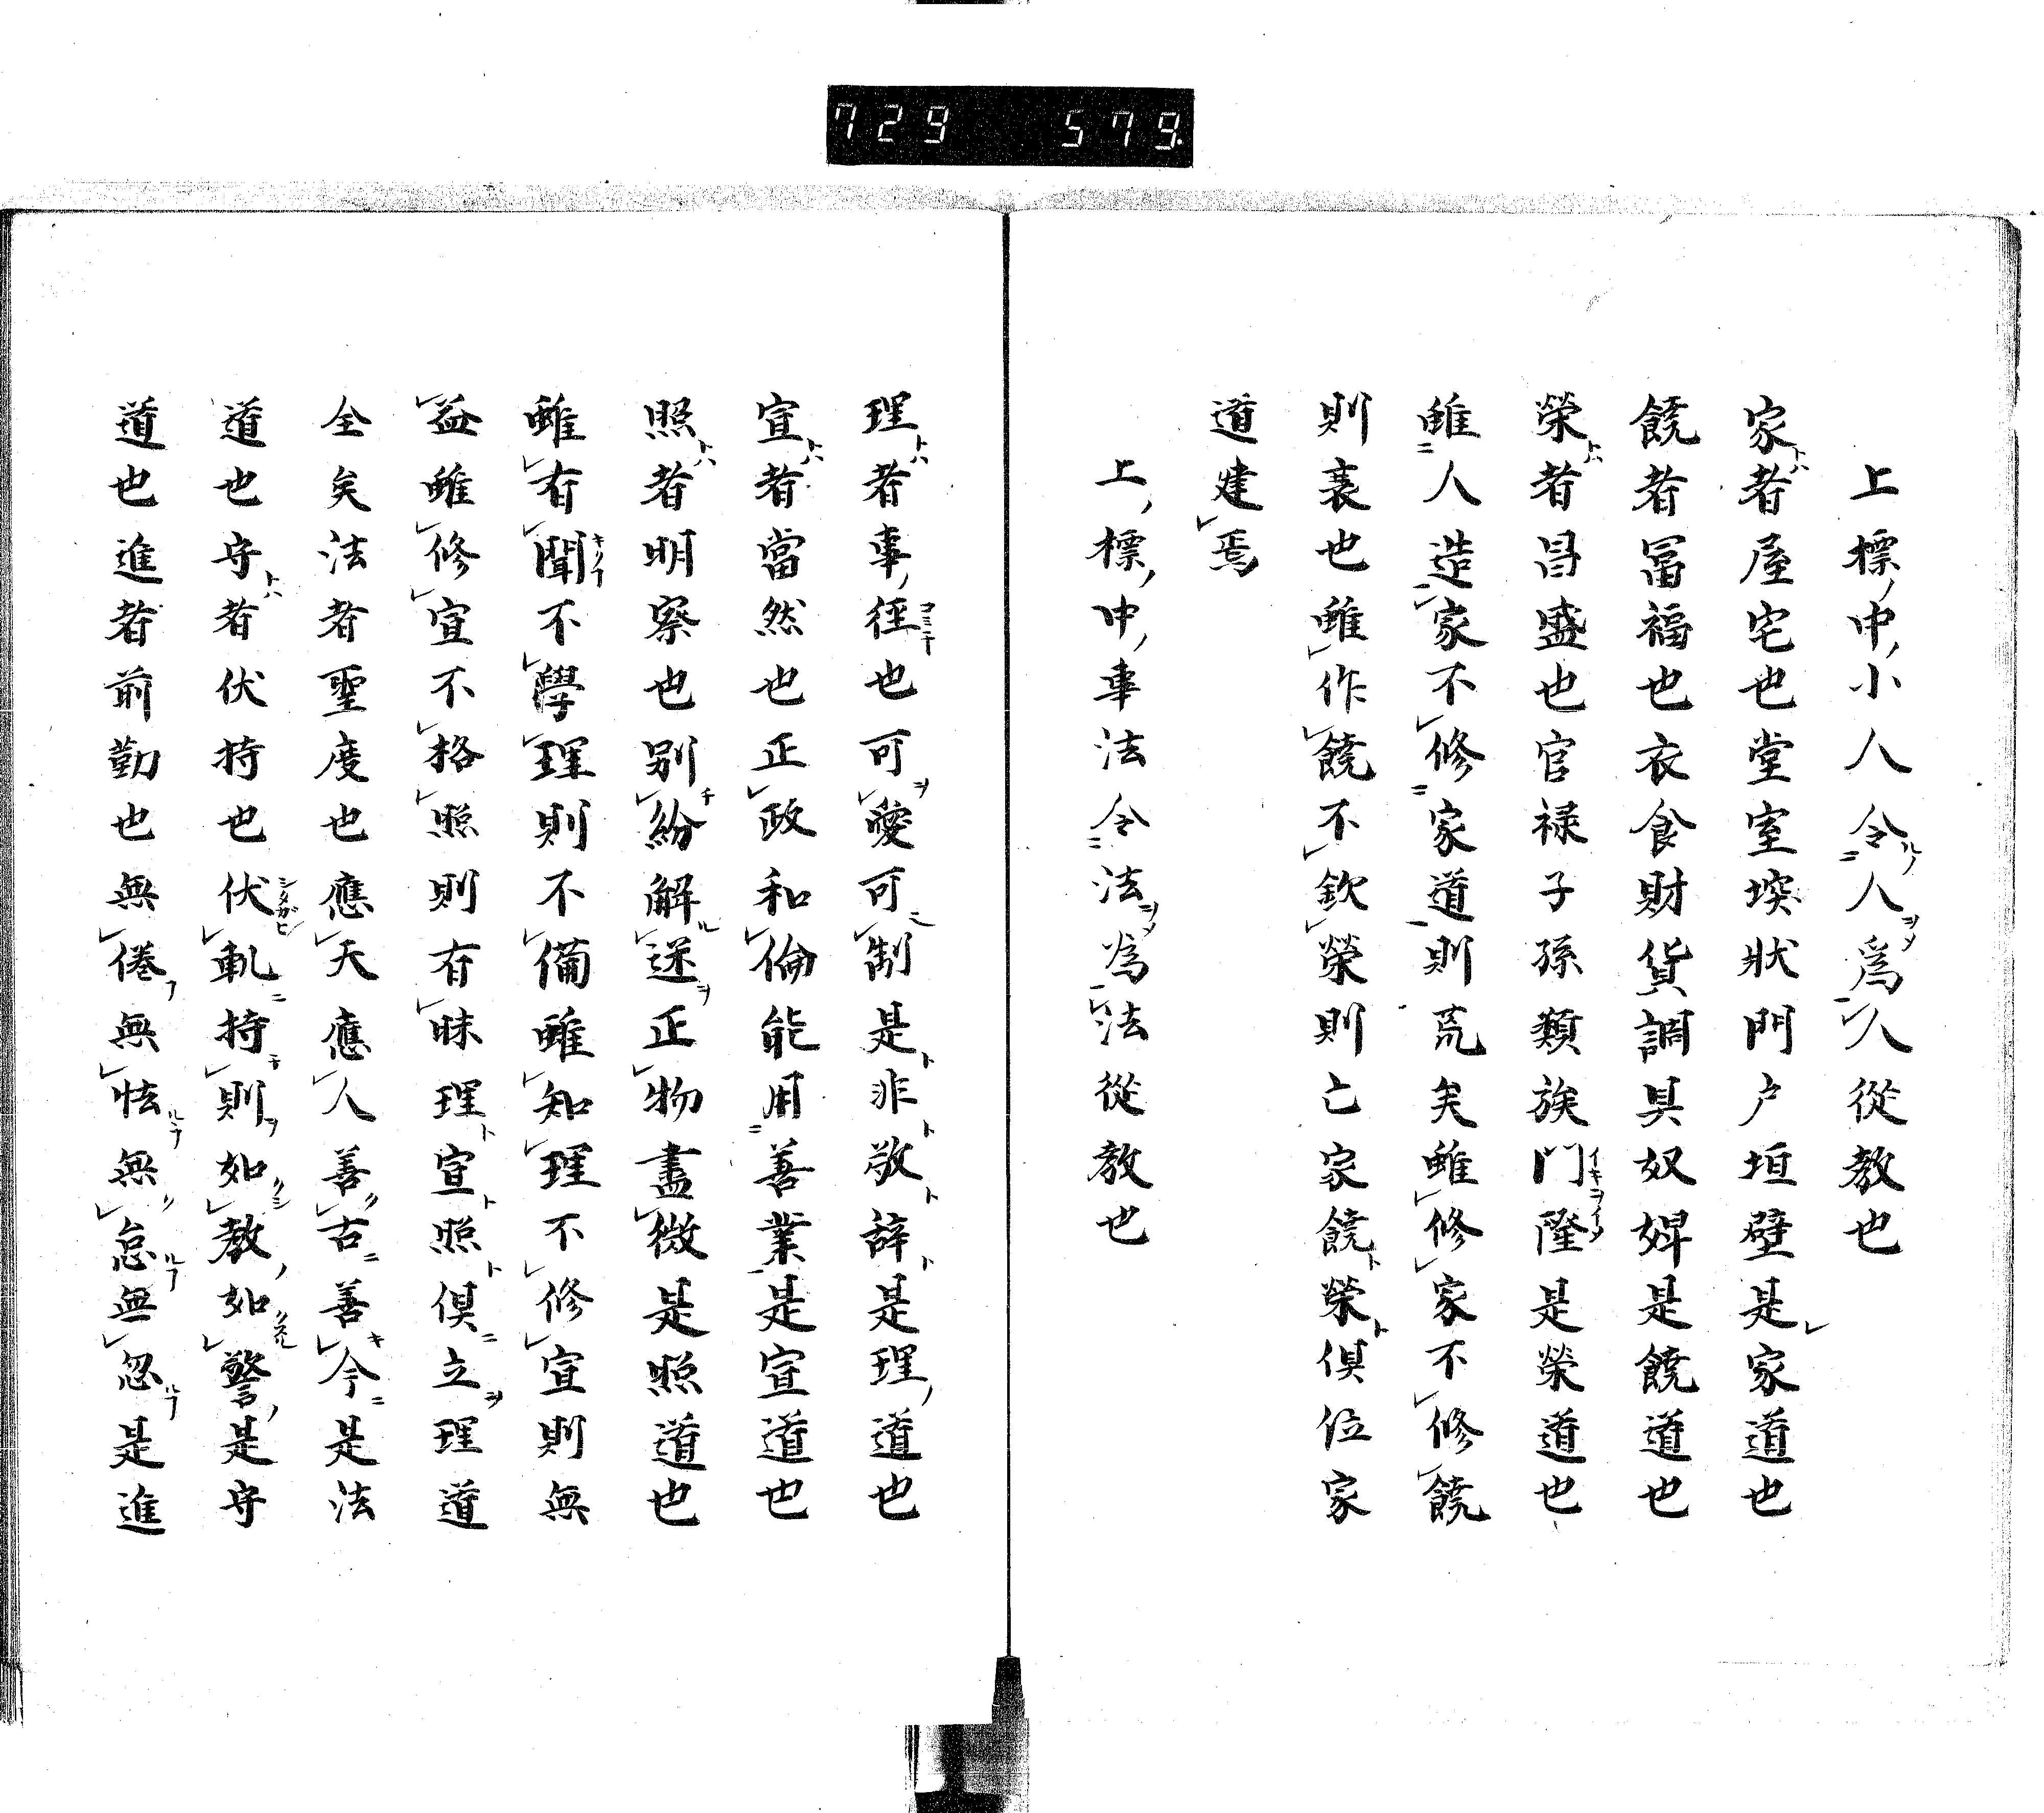 729 579
上標中小人令人為人從教也
家者屋宅也堂室堗狀門戶垣壁是家道也
饒者冨福也衣食財貨調具奴婢是饒道也
榮者昌盛也官禄子孫類族門隆是榮道也
雖人造家不修家道則荒矣雖修家不修饒
則衰也雖作饒不欽榮則亡家饒榮俱位家
道建焉
上標中事法令法為法從教也
理者事徑也可愛可制是非敬辞是理道也
宣者當然也正政和倫能用善業是宣道也
照者明察也別紛解迷正物盡微是照道也
雖有聞不學理則不備雖知理不修宣則無
益雖修宣不格照則有昧理宣照俱立理道
全矣法者聖度也應天應人善古善今是法
道也守者伏持也伏軌持則如教如警是守
道也進者前勤也無倦無怯無怠無忽是進